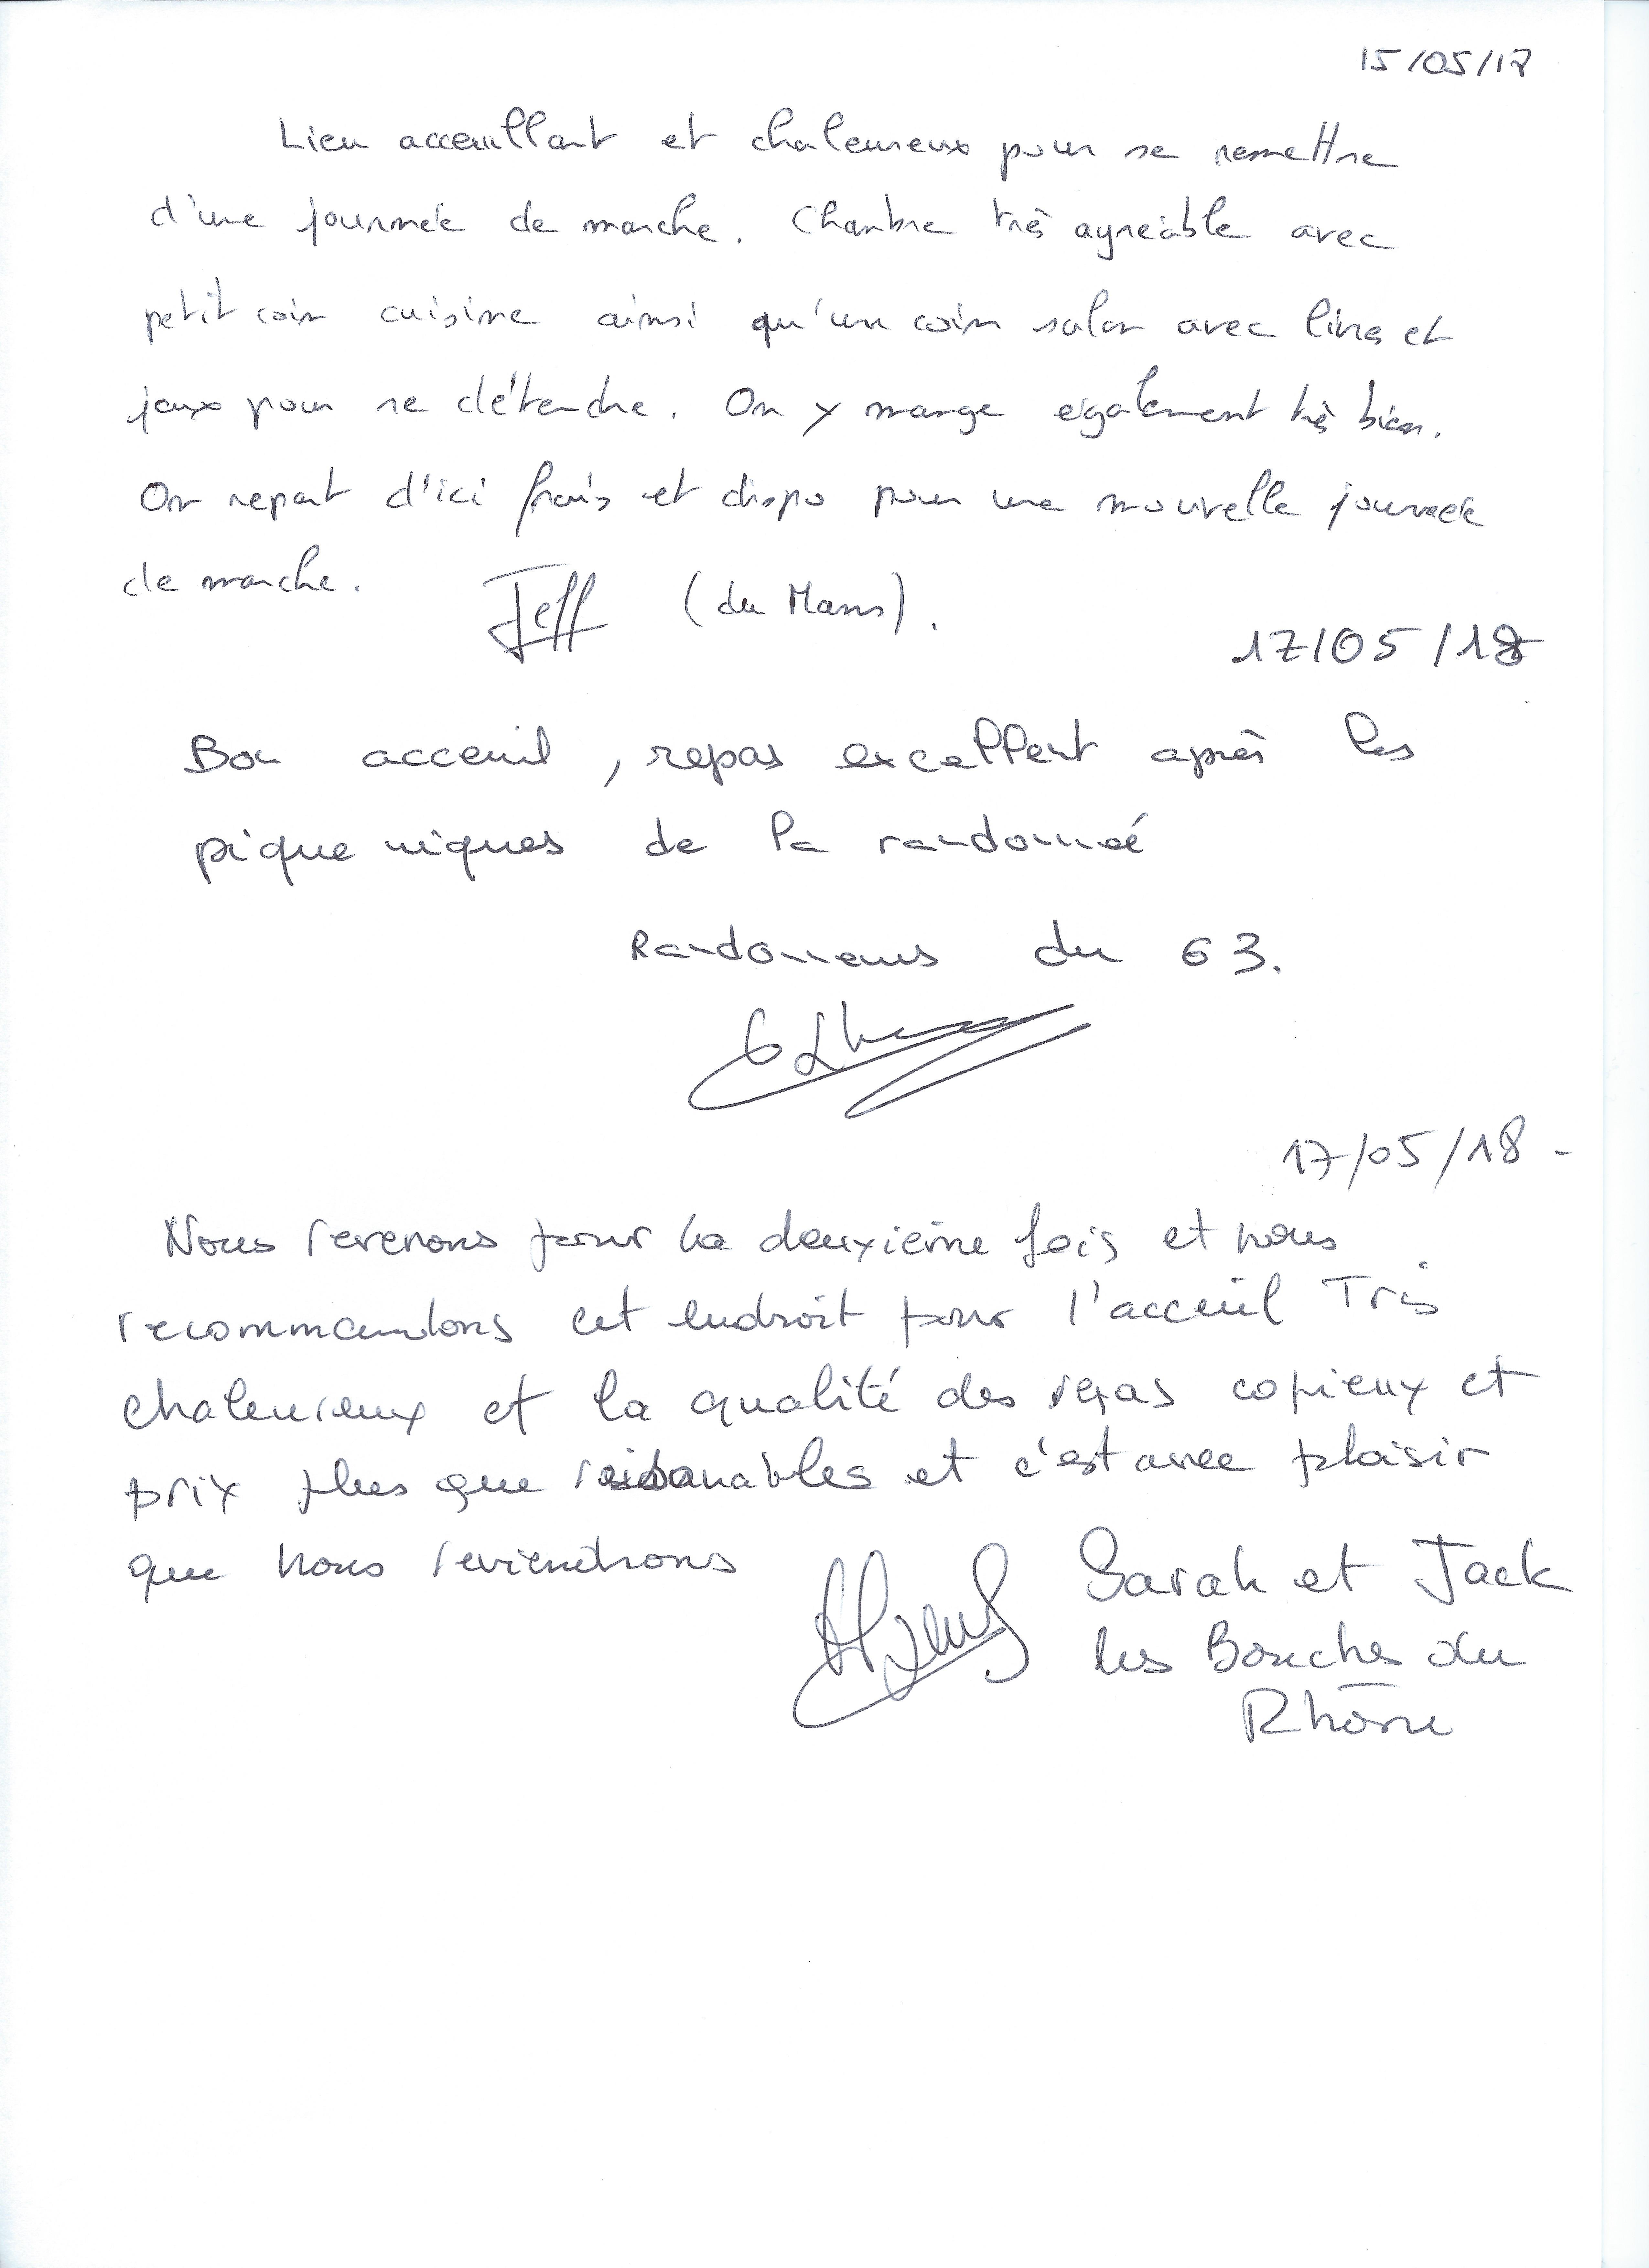 15/05/18
Lieu acceuillant et chaleureux pour se remettre
d'une journée de marche. Chambre très agréable avec
petit coin cuisine ainsi qu'un coin salon avec livres et
jeux pour se détendre. On y mange également très bien.
On repart d'ici frais et dispo pour une nouvelle journée
de marche. Jeff (du Mans).
17/05/18
Bon acceuil, repas excellent après les
pique niques de la randonneé
Randonneurs du 63.
17/05/18 -
Nous revenons pour la deuxième fois et nous
recommandons cet endroit pour l'acceuil Très
chaleureux et la qualité des repas copieux et
prix plus que raisonables et c'est avec plaisir
que nous reviendrons
Sarah et Jack
les Bouches du
Rhône